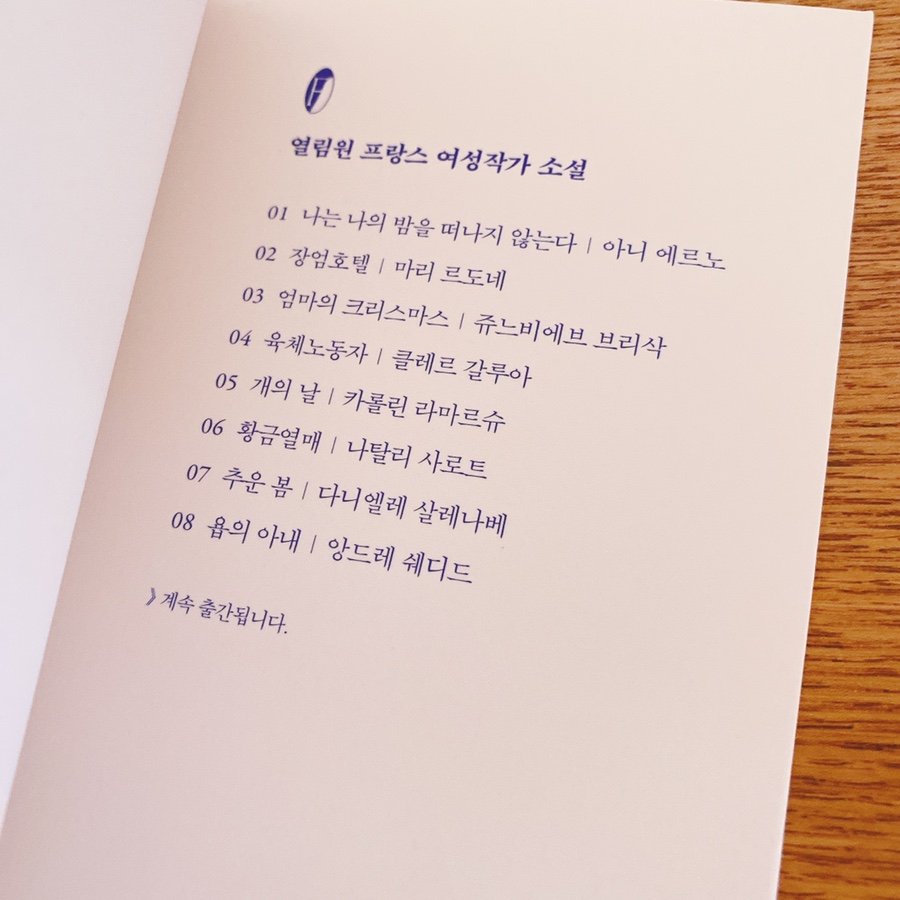 F
열림원 프랑스 여성작가 소설
01 나는 나의 밤을 떠나지 않는다 | 아니 에르노
02 장엄호텔 | 마리 르도네
03 엄마의 크리스마스 | 쥬느비에브 브리삭
04 육체노동자 | 클레르 갈루아
05 개의 날 | 카롤린 라마르슈
06 황금열매 | 나탈리 사로트
07 추운 봄 | 다니엘레 살레나베
08 욥의 아내 | 앙드레 쉐디드
》 계속 출간됩니다.